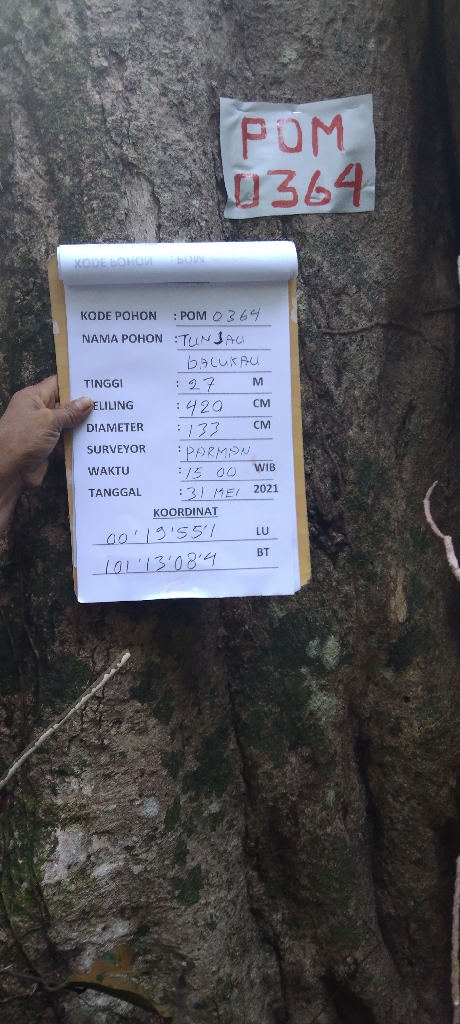 POM
0364
KODE POHON : POM
KODE POHON : POM 0364
NAMA POHON : TUNJAU
BALUKAU
TINGGI : 27 M
KELILING : 420 CM
DIAMETER : 133 CM
SURVEYOR : PARMAN
WAKTU : 15 00 WIB
TANGGAL : 31 MEI 2021
KOORDINAT
00'19'55'1 LU
101'13'08'4 BT